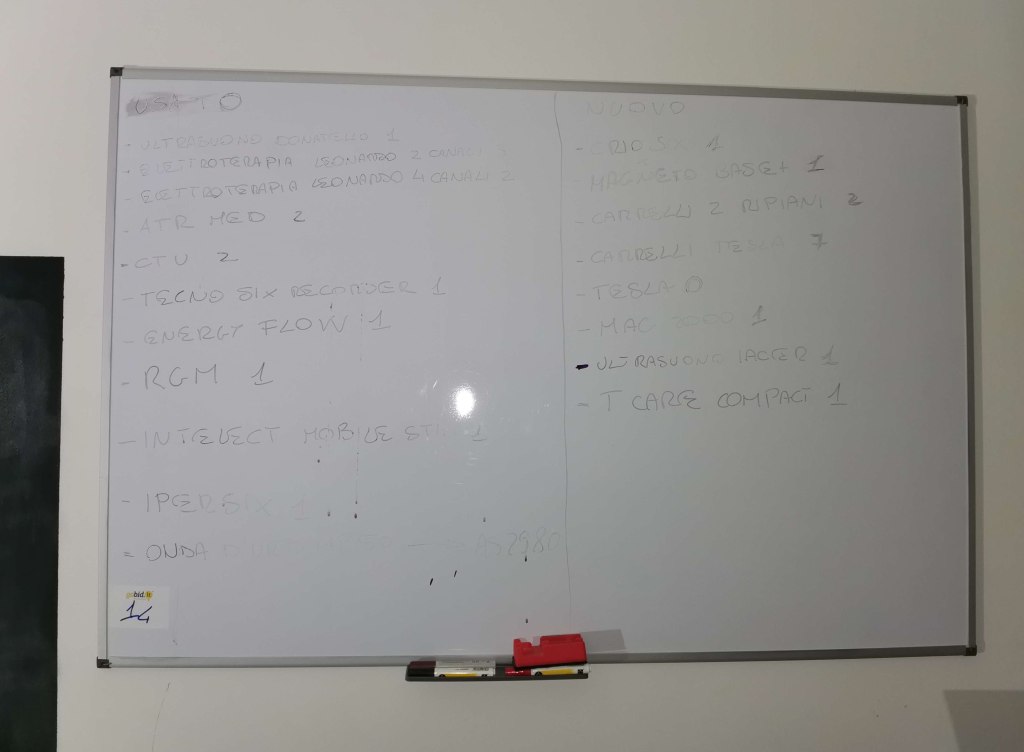 USATO
- ULTRASUONO DONATELLO 1
- ELETTROTERAPIA LEONARDO 2 CANALI
- ELETTROTERAPIA LEONARDO 4 CANALI 2
- ATR MED 2
- CTU 2
- TECNO SIX RECORDER 1
- ENERGY FLOW 1
- RGM 1
- INTELECT MOBILE STIM 1
- IPERSIX 1
- ONDA
gobid.it
14
NUOVO
- CRIO SIX 1
- MAGNETO BASET 1
- CARRELLI 2 RIPIANI 2
- CARRELLI TESLA 7
- TESLA 0
- MAG 2000 1
- ULTRASUONO IACER 1
- T CARE COMPACT 1